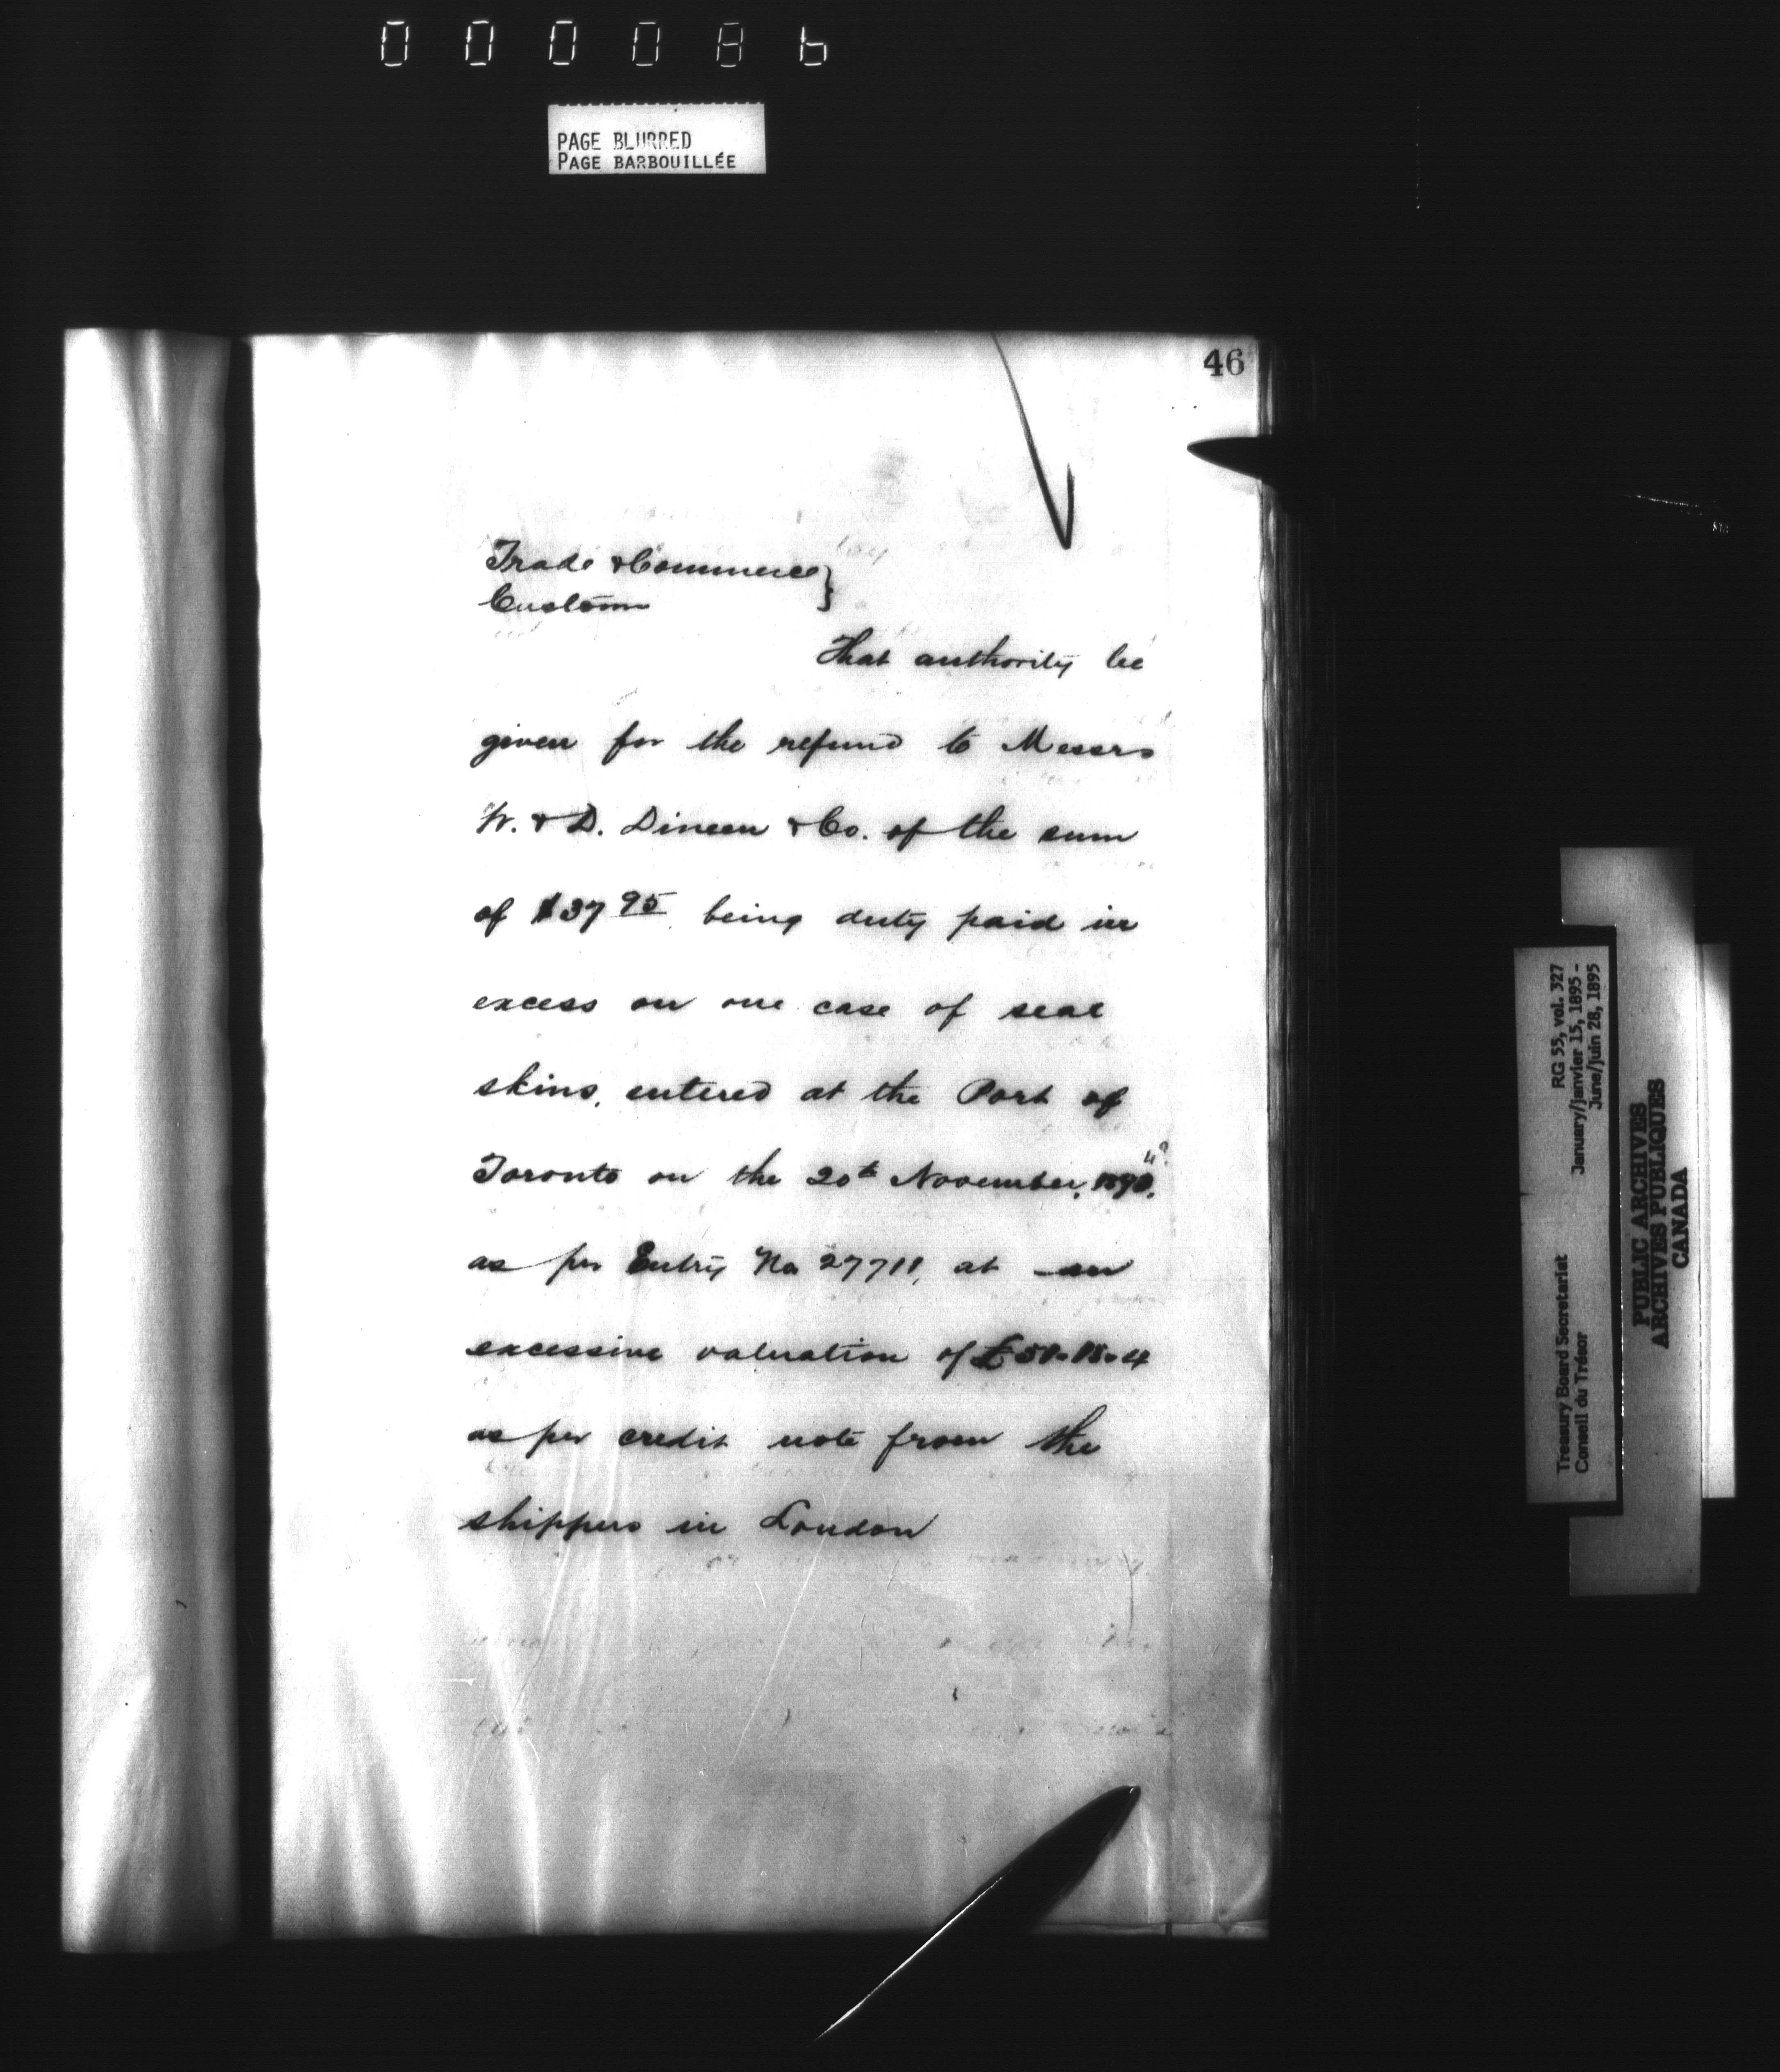 000086
PAGE BLURRED
PAGE BARBOUILLÉE
46
Trade & Commerce }
Customs
That authority be
given for the refund to Messrs
W. & D. Dineen & Co. of the sum
of $37 95 being duty paid in
excess on one case of seal
skins, entered at the Port of
Toronto on the 20th November,
as per Entry No 27711, at an
excessive valuation of
as per credit note from the
shippers in London
RG 55, vol. 327
January/janvier 15, 1895 -
June/juin 28, 1895
Treasury Board Secretariat
Conseil du Trésor
PUBLIC ARCHIVES
ARCHIVES PUBLIQUES
CANADA